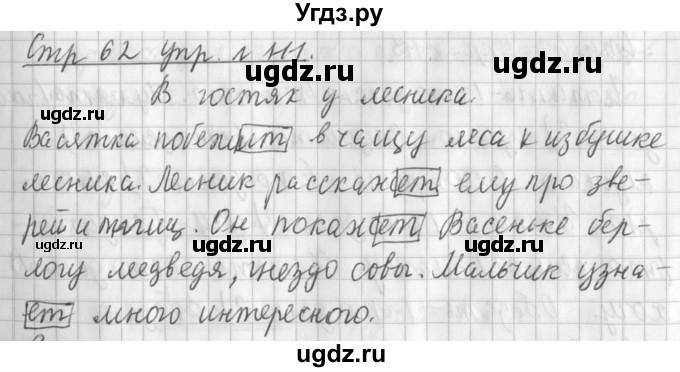 Угдз.ру
Стр 62 упр. 111.
ugdz.ru ugdz.ru
В гостях у лесника.
Васятка побежит в чащу леса к избушке
ugdz.ru
лесника. Лесник расскажет ему про зве-
рей и птиц. Он покажет Васеньке бер-
ugdz.ru ugdz.ru
логу медведя, гнездо совы. Мальчик узна-
ет много интересного.
ugdz.ru
ugdz.ru